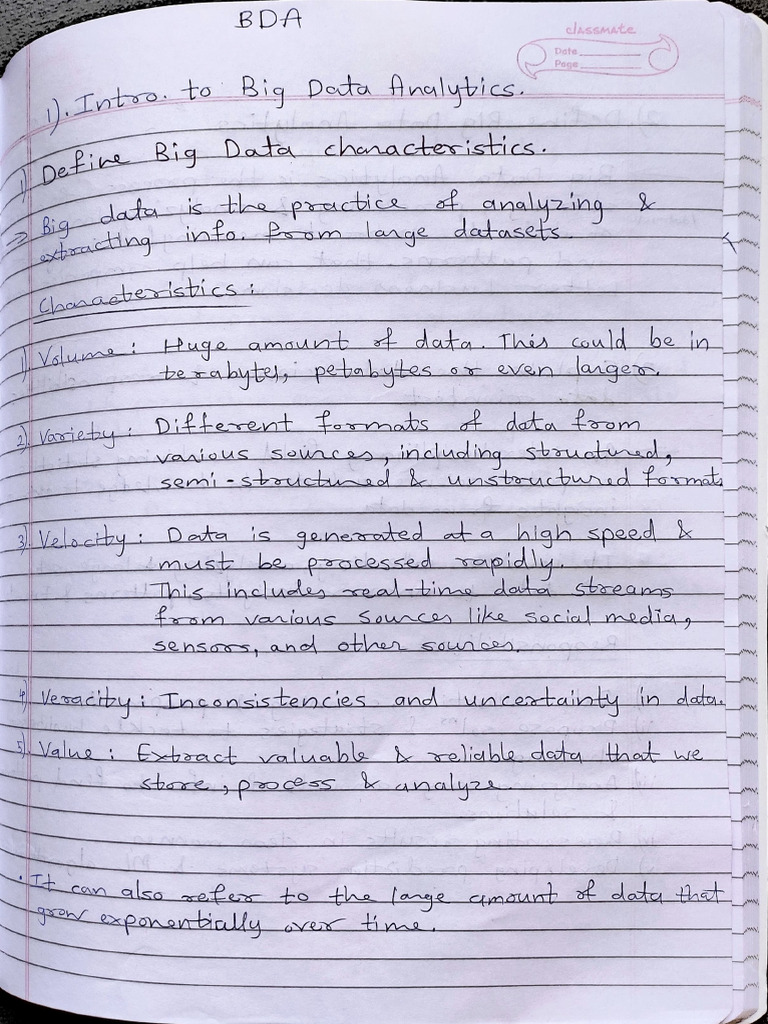 BDA
classmate
Date
Page
1). Intro. to Big Data Analytics.
1) Define Big Data characteristics.
=> Big data is the practice of analyzing &
extracting info. from large datasets.
Characteristics:
1) Volume: Huge amount of data. This could be in
terabytes, petabytes or even larger.
2) Variety: Different formats of data from
various sources, including structured,
semi-structured & unstructured formats
3) Velocity: Data is generated at a high speed &
must be processed rapidly.
This includes real-time data streams
from various sources like social media,
sensors, and other sources.
4) Veracity: Inconsistencies and uncertainty in data.
5) Value: Extract valuable & reliable data that we
store, process & analyze.
• It can also refer to the large amount of data that
grow exponentially over time.